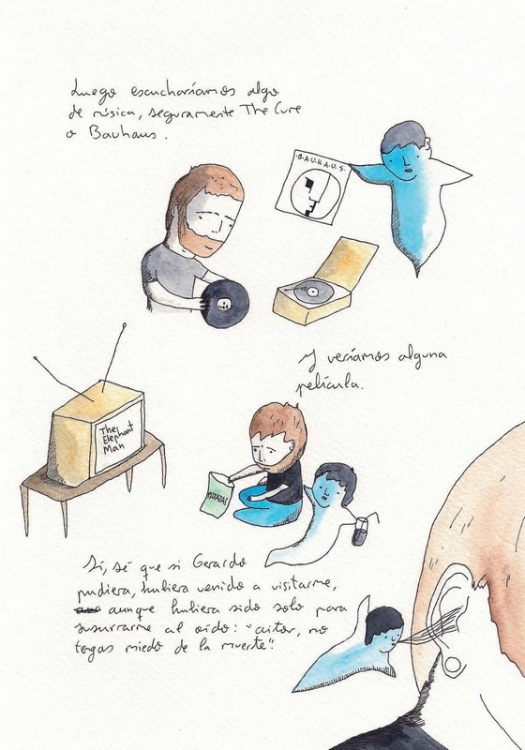 Luego escucharíamos algo
de música, seguramente The Cure
o Bauhaus.
B.A.U.H.A.U.S.
Y veríamos alguna
película.
The
Elephant
Man
Sí, sé que si Gerardo
pudiera, hubiera venido a visitarme,
aunque hubiera sido solo para
susurrarme al oído: "aitor, no
tengas miedo de la muerte".